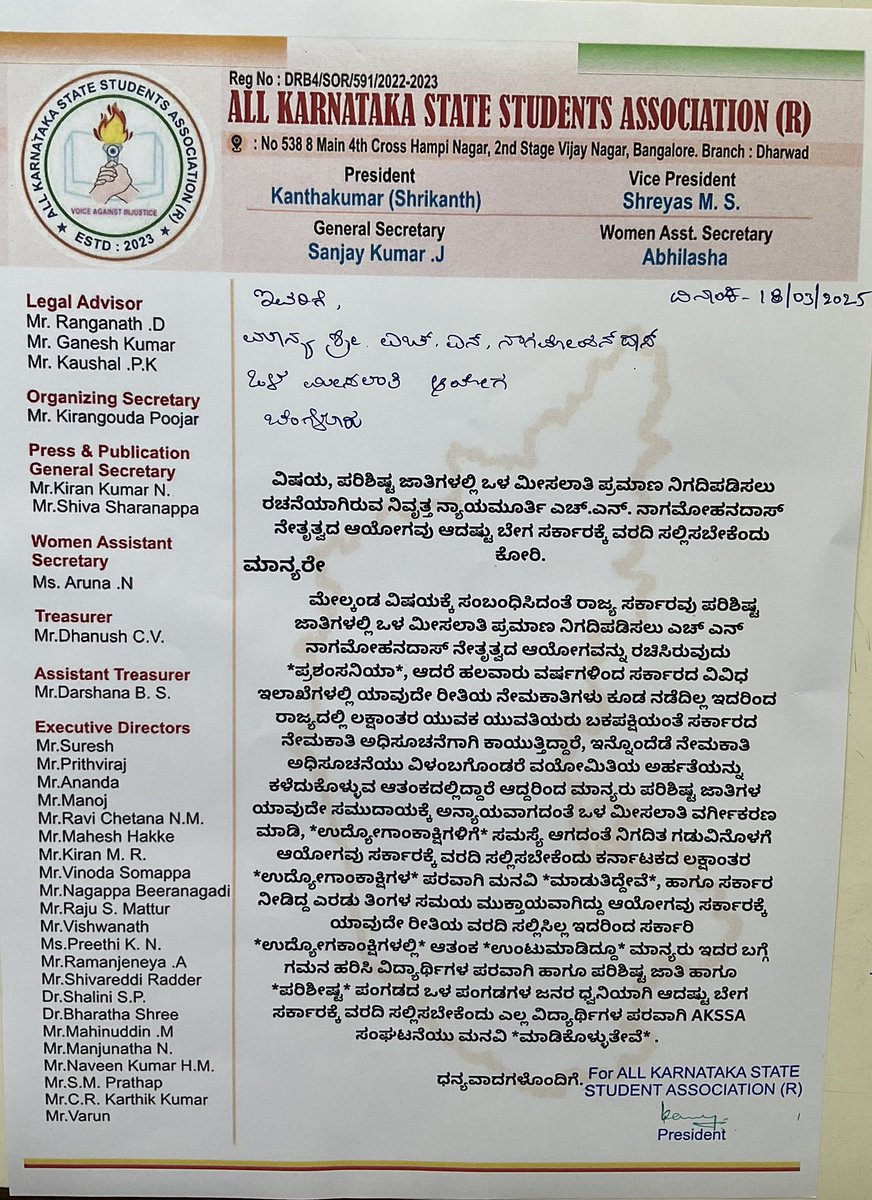 Reg No : DRB4/SOR/591/2022-2023
ALL KARNATAKA STATE STUDENTS ASSOCIATION (R)
: No 538 8 Main 4th Cross Hampi Nagar, 2nd Stage Vijay Nagar, Bangalore. Branch : Dharwad
ALL KARNATAKA STATE STUDENTS ASSOCIATION (R)
VOICE AGAINST INJUSTICE
★ ESTD : 2023 ★
President
Kanthakumar (Shrikanth)
Vice President
Shreyas M. S.
General Secretary
Sanjay Kumar .J
Women Asst. Secretary
Abhilasha
Legal Advisor
Mr. Ranganath .D
Mr. Ganesh Kumar
Mr. Kaushal .P.K
Organizing Secretary
Mr. Kirangouda Poojar
Press & Publication
General Secretary
Mr.Kiran Kumar N.
Mr.Shiva Sharanappa
Women Assistant
Secretary
Ms. Aruna .N
Treasurer
Mr.Dhanush C.V.
Assistant Treasurer
Mr.Darshana B. S.
Executive Directors
Mr.Suresh
Mr.Prithviraj
Mr.Ananda
Mr.Manoj
Mr.Ravi Chetana N.M.
Mr.Mahesh Hakke
Mr.Kiran M. R.
Mr.Vinoda Somappa
Mr.Nagappa Beeranagadi
Mr.Raju S. Mattur
Mr.Vishwanath
Ms.Preethi K. N.
Mr.Ramanjeneya .A
Mr.Shivareddi Radder
Dr.Shalini S.P.
Dr.Bharatha Shree
Mr.Mahinuddin .M
Mr.Manjunatha N.
Mr.Naveen Kumar H.M.
Mr.S.M. Prathap
Mr.C.R. Karthik Kumar
Mr.Varun
ಇವರಿಗೆ,
ದಿನಾಂಕ- 18/03/2025
ಮಾನ್ಯ ಶ್ರೀ. ಎಚ್. ಎನ್. ನಾಗಮೋಹನ್ ದಾಸ್
ಒಳ ಮೀಸಲಾತಿ ಆಯೋಗ
ಬೆಂಗಳೂರು
ವಿಷಯ, ಪರಿಶಿಷ್ಟ ಜಾತಿಗಳಲ್ಲಿ ಒಳ ಮೀಸಲಾತಿ ಪ್ರಮಾಣ ನಿಗದಿಪಡಿಸಲು
ರಚನೆಯಾಗಿರುವ ನಿವೃತ್ತ ನ್ಯಾಯಮೂರ್ತಿ ಎಚ್.ಎನ್. ನಾಗಮೋಹನದಾಸ್
ನೇತೃತ್ವದ ಆಯೋಗವು ಆದಷ್ಟು ಬೇಗ ಸರ್ಕಾರಕ್ಕೆ ವರದಿ ಸಲ್ಲಿಸಬೇಕೆಂದು
ಕೋರಿ.
ಮಾನ್ಯರೇ
ಮೇಲ್ಕಂಡ ವಿಷಯಕ್ಕೆ ಸಂಬಂಧಿಸಿದಂತೆ ರಾಜ್ಯ ಸರ್ಕಾರವು ಪರಿಶಿಷ್ಟ
ಜಾತಿಗಳಲ್ಲಿ ಒಳ ಮೀಸಲಾತಿ ಪ್ರಮಾಣ ನಿಗದಿಪಡಿಸಲು ಎಚ್ ಎನ್
ನಾಗಮೋಹನದಾಸ್ ನೇತೃತ್ವದ ಆಯೋಗವನ್ನು ರಚಿಸಿರುವುದು
*ಪ್ರಶಂಸನಿಯಾ*, ಆದರೆ ಹಲವಾರು ವರ್ಷಗಳಿಂದ ಸರ್ಕಾರದ ವಿವಿಧ
ಇಲಾಖೆಗಳಲ್ಲಿ ಯಾವುದೇ ರೀತಿಯ ನೇಮಕಾತಿಗಳು ಕೂಡ ನಡೆದಿಲ್ಲ ಇದರಿಂದ
ರಾಜ್ಯದಲ್ಲಿ ಲಕ್ಷಾಂತರ ಯುವಕ ಯುವತಿಯರು ಬಕಪಕ್ಷಿಯಂತೆ ಸರ್ಕಾರದ
ನೇಮಕಾತಿ ಅಧಿಸೂಚನೆಗಾಗಿ ಕಾಯುತ್ತಿದ್ದಾರೆ, ಇನ್ನೊಂದೆಡೆ ನೇಮಕಾತಿ
ಅಧಿಸೂಚನೆಯು ವಿಳಂಬಗೊಂಡರೆ ವಯೋಮಿತಿಯ ಅರ್ಹತೆಯನ್ನು
ಕಳೆದುಕೊಳ್ಳುವ ಆತಂಕದಲ್ಲಿದ್ದಾರೆ ಆದ್ದರಿಂದ ಮಾನ್ಯರು ಪರಿಶಿಷ್ಟ ಜಾತಿಗಳ
ಯಾವುದೇ ಸಮುದಾಯಕ್ಕೆ ಅನ್ಯಾಯವಾಗದಂತೆ ಒಳ ಮೀಸಲಾತಿ ವರ್ಗೀಕರಣ
ಮಾಡಿ, *ಉದ್ಯೋಗಾಂಕಾಕ್ಷಿಗಳಿಗೆ* ಸಮಸ್ಯೆ ಆಗದಂತೆ ನಿಗದಿತ ಗಡುವಿನೊಳಗೆ
ಆಯೋಗವು ಸರ್ಕಾರಕ್ಕೆ ವರದಿ ಸಲ್ಲಿಸಬೇಕೆಂದು ಕರ್ನಾಟಕದ ಲಕ್ಷಾಂತರ
*ಉದ್ಯೋಗಾಂಕಾಕ್ಷಿಗಳ* ಪರವಾಗಿ ಮನವಿ *ಮಾಡುತಿದ್ದೇವೆ*, ಹಾಗೂ ಸರ್ಕಾರ
ನೀಡಿದ್ದ ಎರಡು ತಿಂಗಳ ಸಮಯ ಮುಕ್ತಾಯವಾಗಿದ್ದು ಆಯೋಗವು ಸರ್ಕಾರಕ್ಕೆ
ಯಾವುದೇ ರೀತಿಯ ವರದಿ ಸಲ್ಲಿಸಿಲ್ಲ ಇದರಿಂದ ಸರ್ಕಾರಿ
*ಉದ್ಯೋಗಕಾಂಕ್ಷಿಗಳಲ್ಲಿ* ಆತಂಕ *ಉಂಟುಮಾಡಿದ್ದೂ* ಮಾನ್ಯರು ಇದರ ಬಗ್ಗೆ
ಗಮನ ಹರಿಸಿ ವಿದ್ಯಾರ್ಥಿಗಳ ಪರವಾಗಿ ಹಾಗೂ ಪರಿಶಿಷ್ಟ ಜಾತಿ ಹಾಗೂ
*ಪರಿಶೀಷ್ಟ* ಪಂಗಡದ ಒಳ ಪಂಗಡಗಳ ಜನರ ಧ್ವನಿಯಾಗಿ ಆದಷ್ಟು ಬೇಗ
ಸರ್ಕಾರಕ್ಕೆ ವರದಿ ಸಲ್ಲಿಸಬೇಕೆಂದು ಎಲ್ಲ ವಿದ್ಯಾರ್ಥಿಗಳ ಪರವಾಗಿ AKSSA
ಸಂಘಟನೆಯು ಮನವಿ *ಮಾಡಿಕೊಳ್ಳುತೇವೆ* .
ಧನ್ಯವಾದಗಳೊಂದಿಗೆ.
For ALL KARNATAKA STATE
STUDENT ASSOCIATION (R)
President